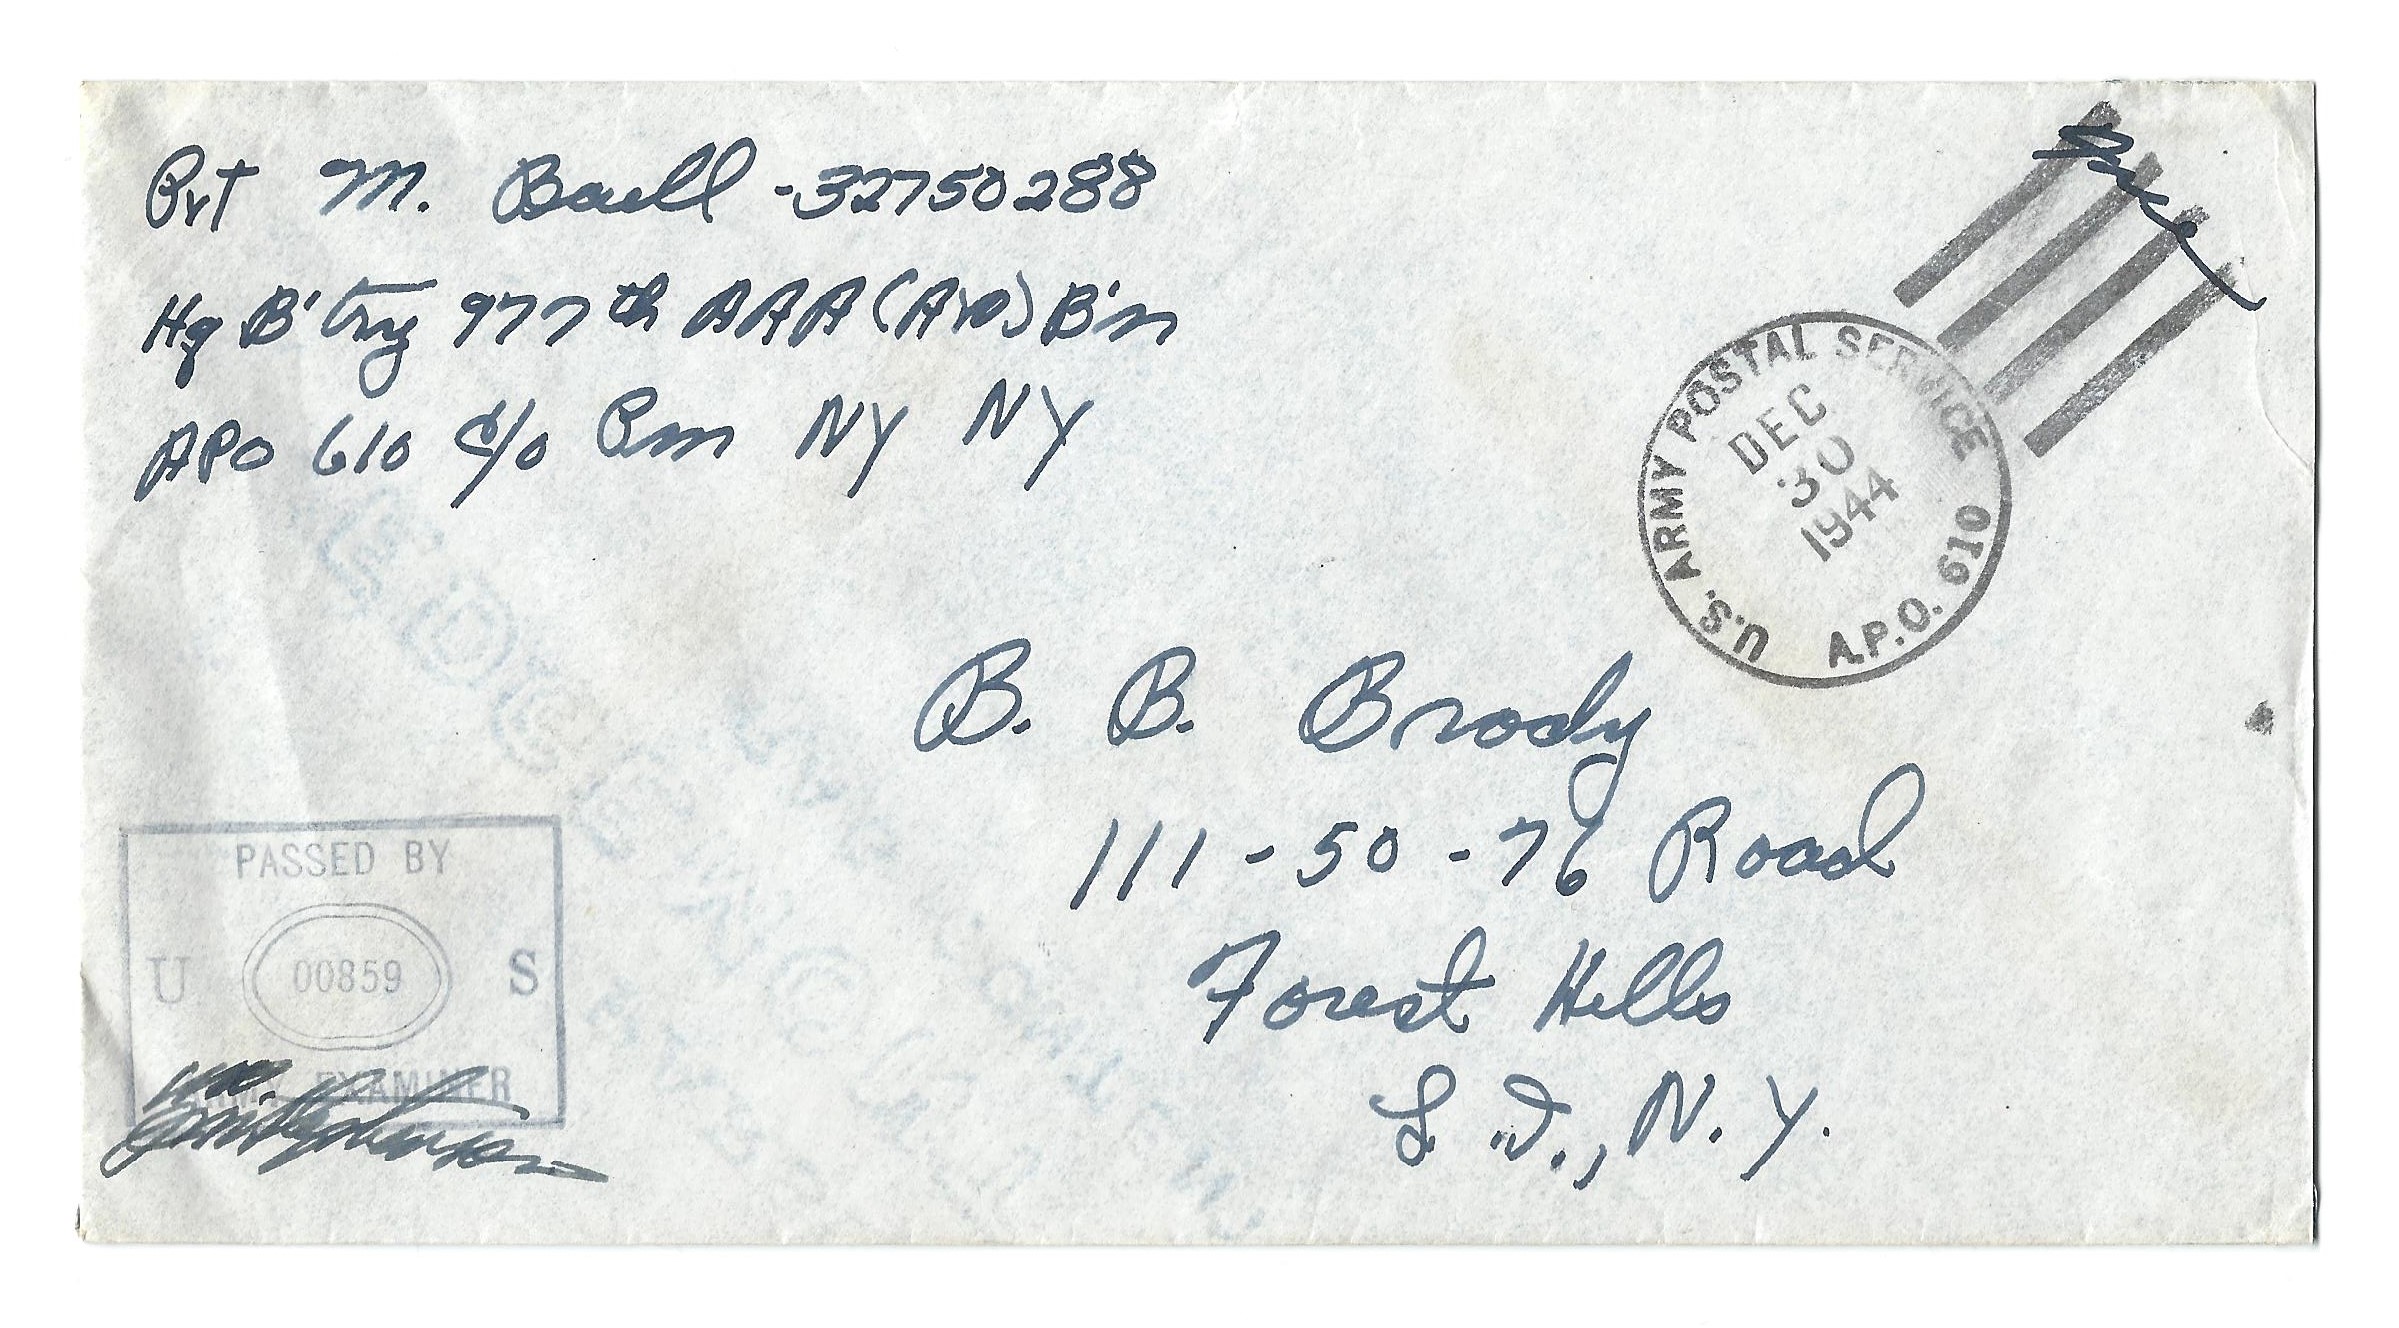 Pvt M. Baell - 32750288
Hq B'try 977th AAA (AW) B'n
APO 610 c/o Pm NY NY
Free
U.S. ARMY POSTAL SERVICE A.P.O. 610
DEC
30
1944
B. B. Brody
111-50-76 Road
Forest Hills
L.I., N.Y.
PASSED BY
U 00859 S
ARMY EXAMINER